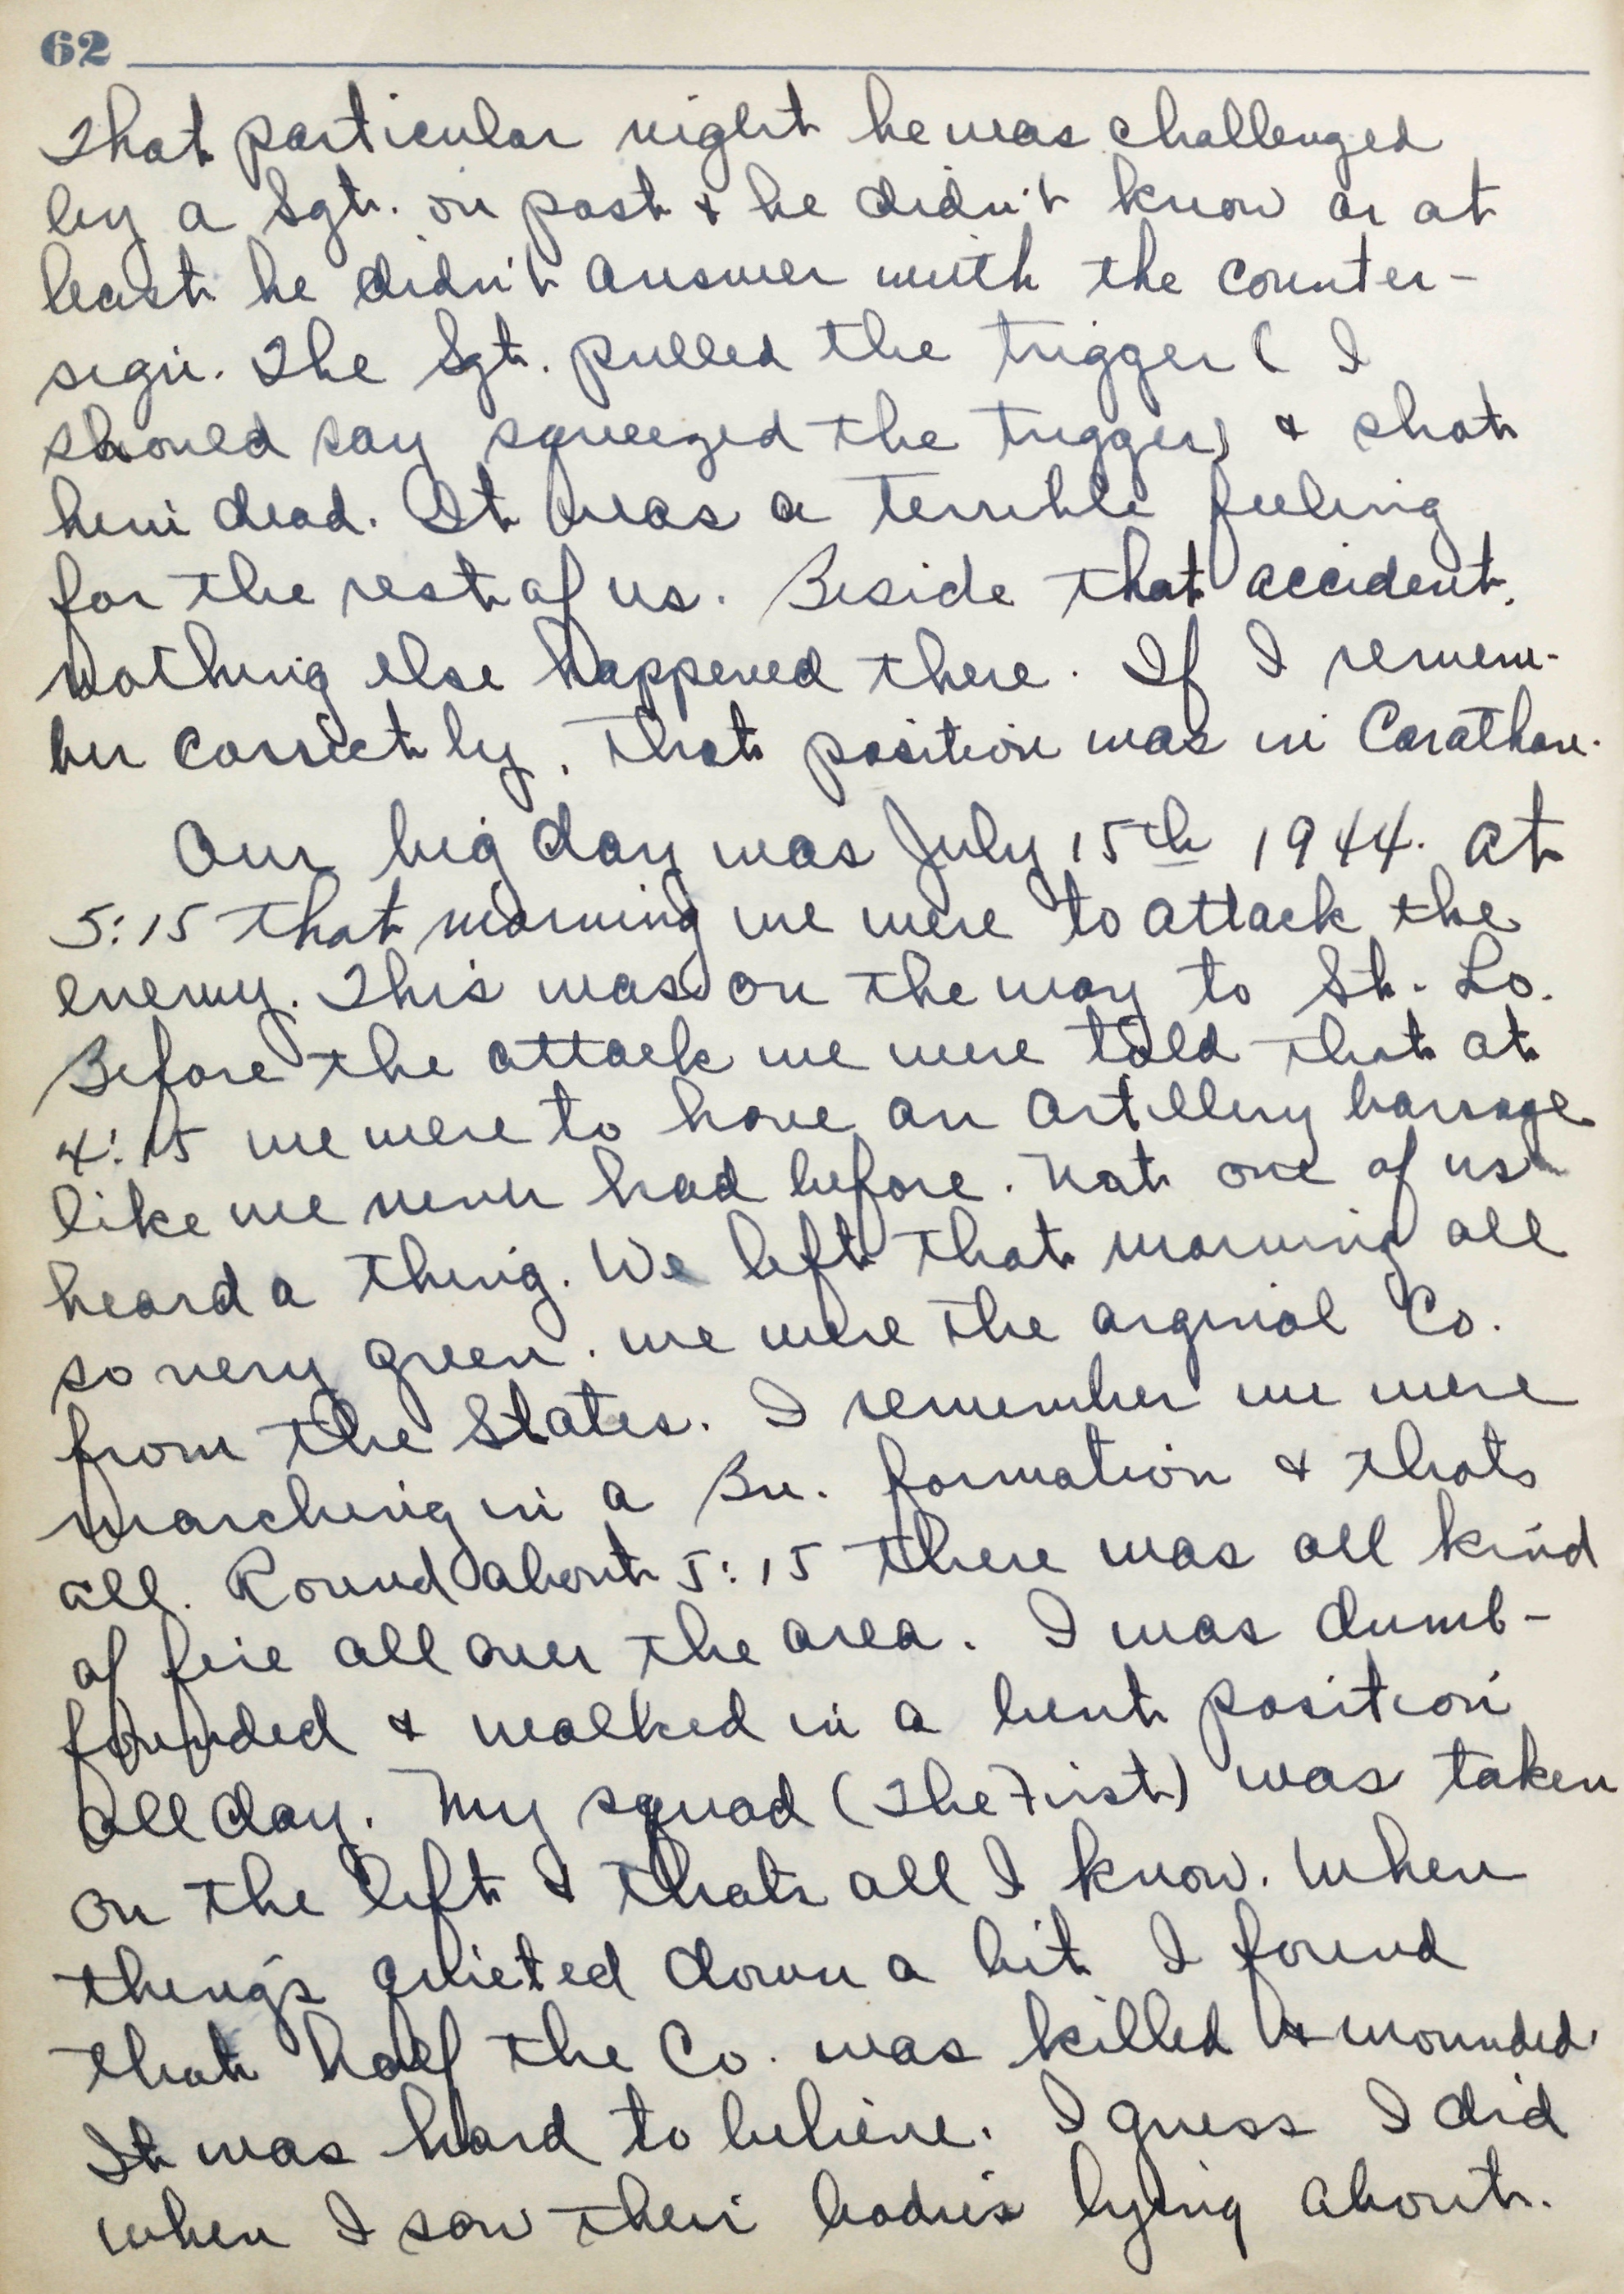 62
That particular night he was challenged
by a Sgt. on post & he didn't know or at
least he didn't answer with the counter-
sign. The Sgt. pulled the trigger ( I
should say squeezed the trigger) & shot
him dead. It was a terrible feeling
for the rest of us. Beside that accident,
nothing else happened there. If I remem-
ber correctly, that position was in Carathan.
Our big day was July 15th 1944. At
5:15 that morning we were to attack the
enemy. This was on the way to St. Lo.
Before the attack we were told that at
4:15 we were to have an artillery barrage
like we never had before. Not one of us
heard a thing. We left that morning all
so very green. we were the orginal Co.
from the States. I remember we were
marching in a Bn. formation & thats
all. Round about 5:15 there was all kind
of fire all over the area. I was dumb-
founded & walked in a bent position
all day. My squad (The First) was taken
on the left & thats all I know. When
things quieted down a bit I found
that half the Co. was killed & wounded.
It was hard to believe. I guess I did
when I saw their bodies lying about.